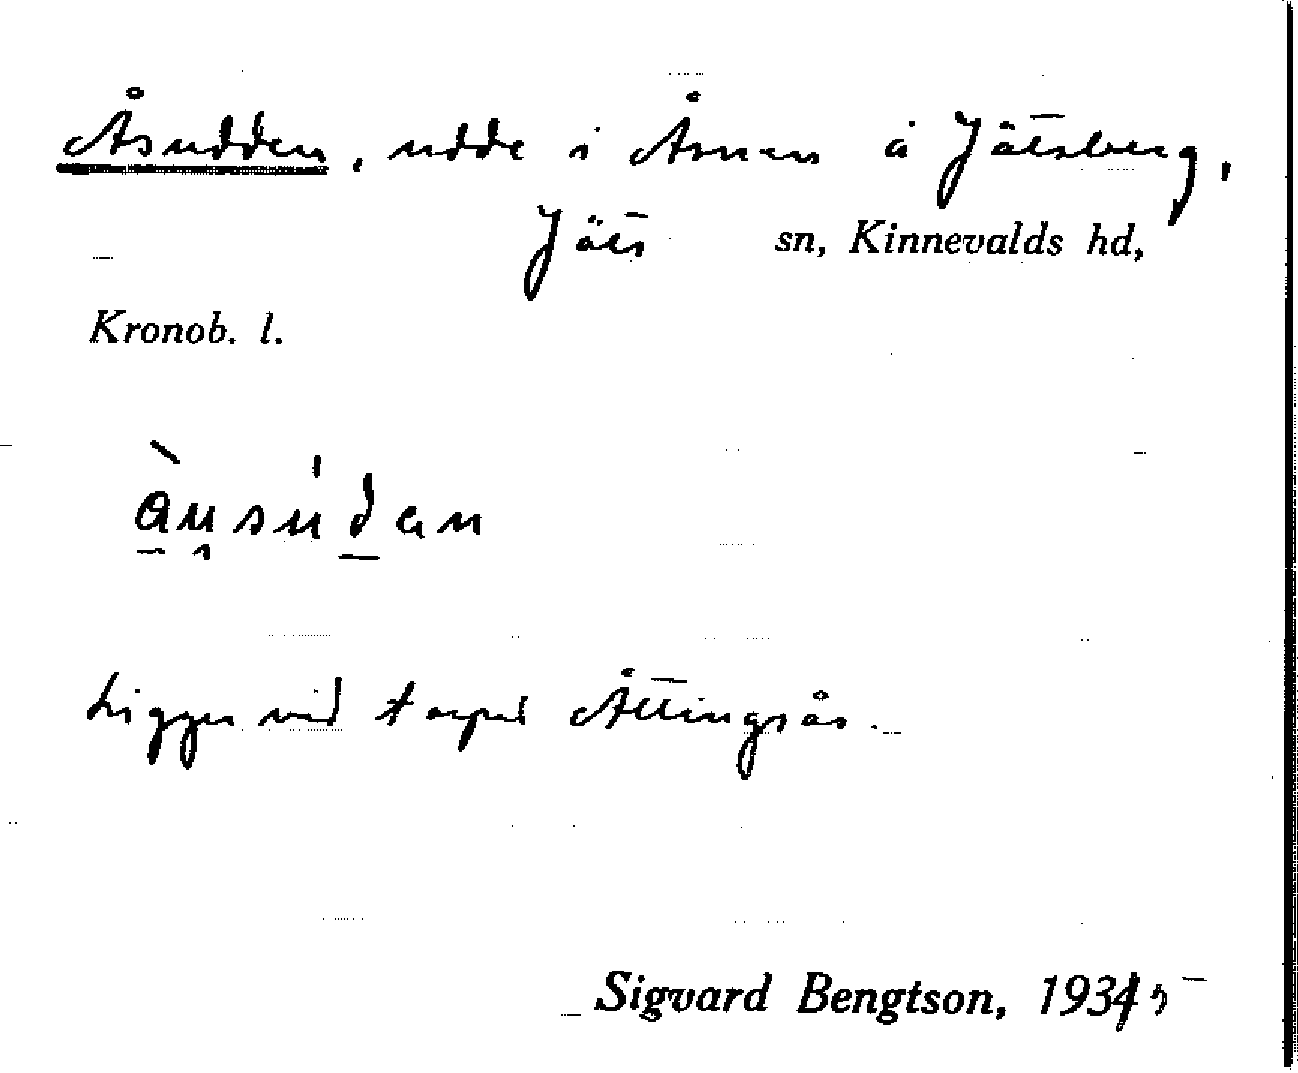 Åsudden, udde i Åsnen å Jätsberg,
Jäts sn, Kinnevalds hd,
Kronob. l.
àusúdan
Ligger vid torpet Åttingsås.
Sigvard Bengtson, 1935